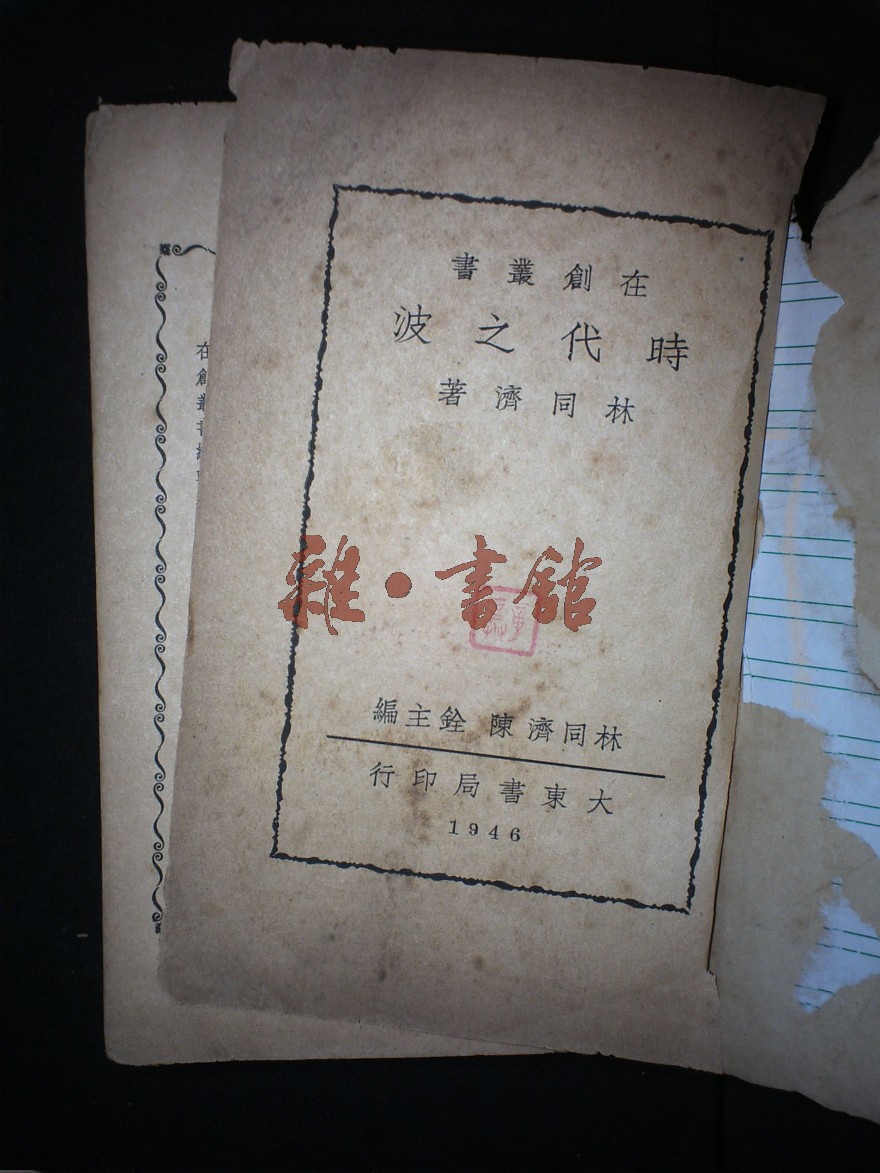 在創叢書
時代之波
林同濟著
林同濟 陳 銓主編
大東書局印行
1946
雜·書館
在創叢書